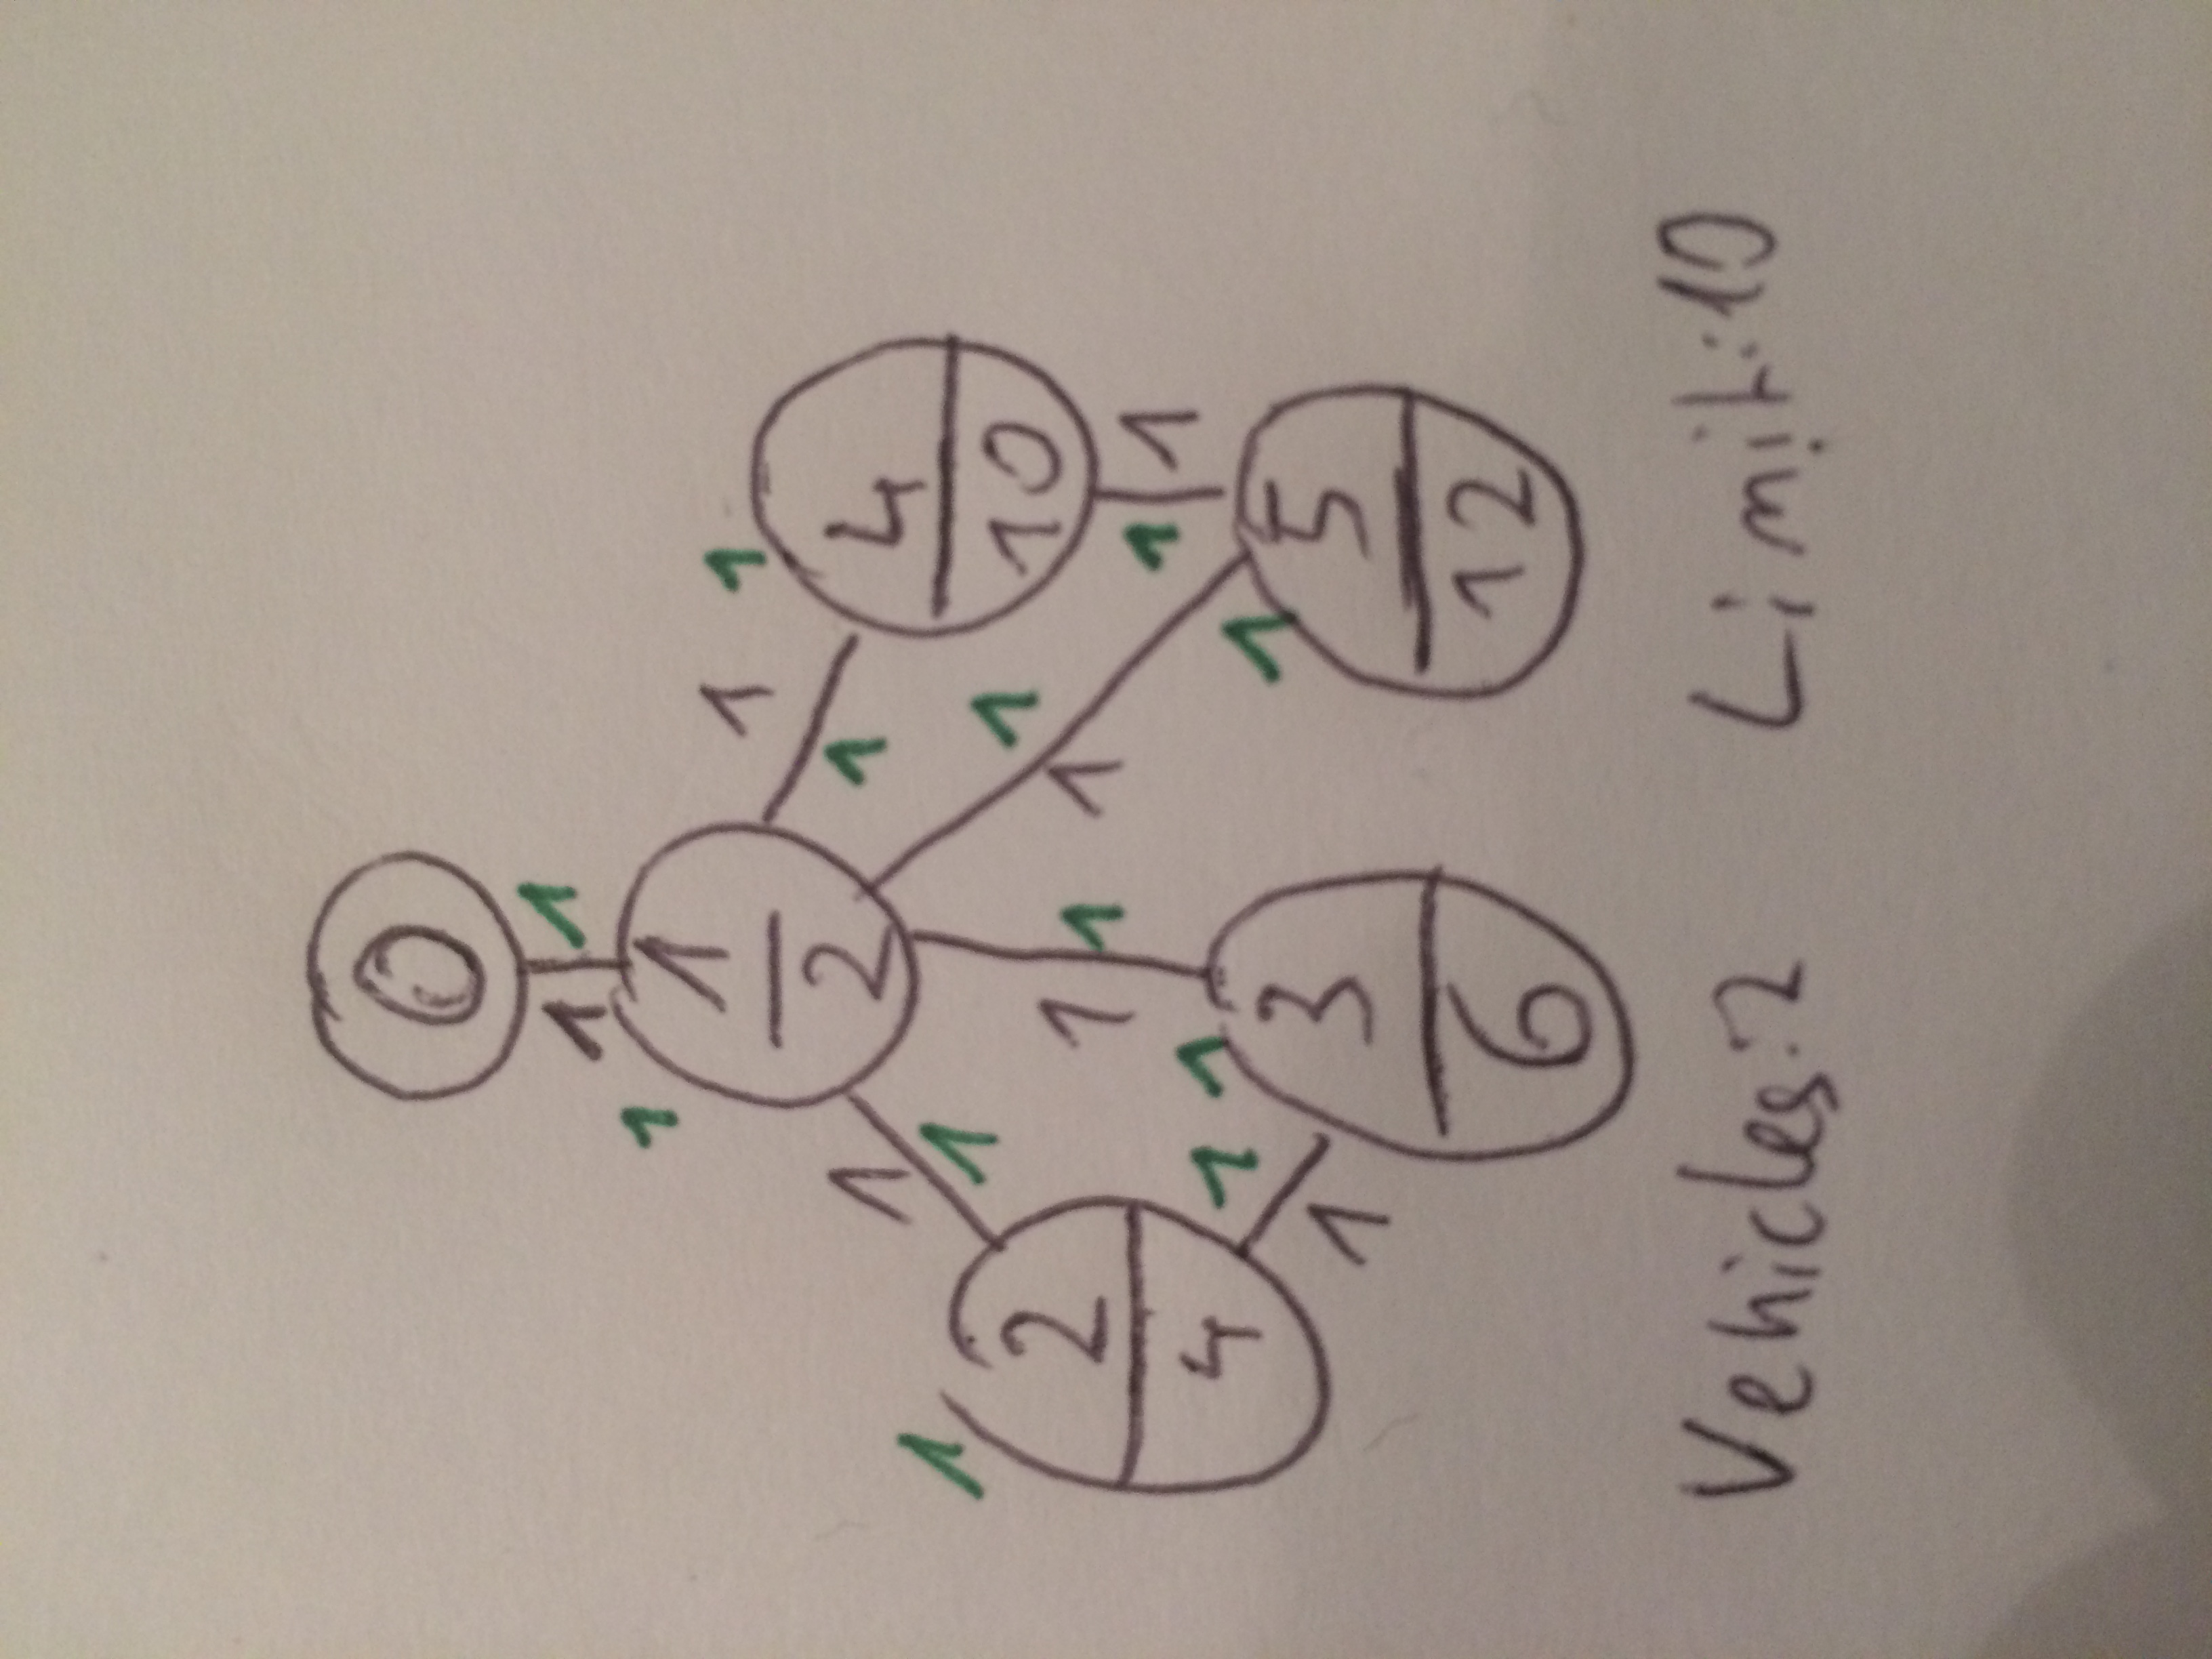 0
1 1
1
1
2
1 1
1 1
1
1
2
4
4
10
1 1
1 1
1 1
1
1
1
1
3
6
5
12
Vehicles:2
Limit:10